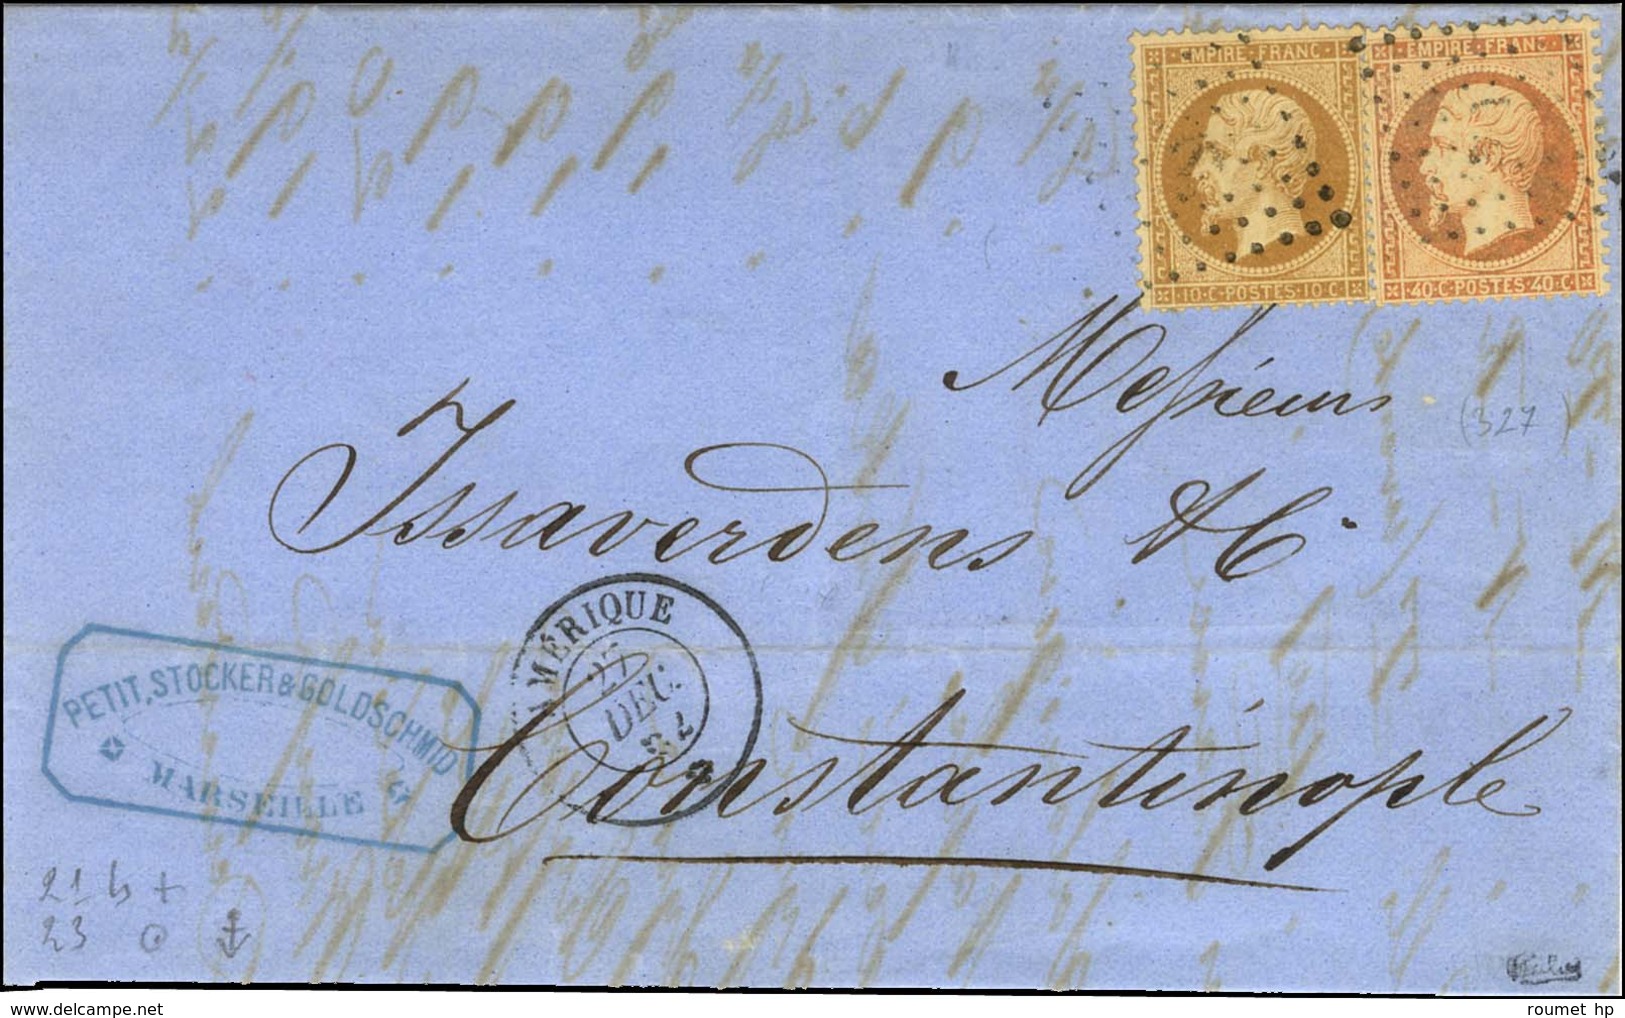 EMPIRE·FRANC·
10·C·POSTES·10·C
EMPIRE·FRANC·
40·C·POSTES·40·C
Messieurs
(327)
Issaverdens & C.
AMÉRIQUE
27
DEC.
PETIT, STOCKER & GOLDSCHMID
MARSEILLE
Constantinople
21 b +
23
© - roumet hp